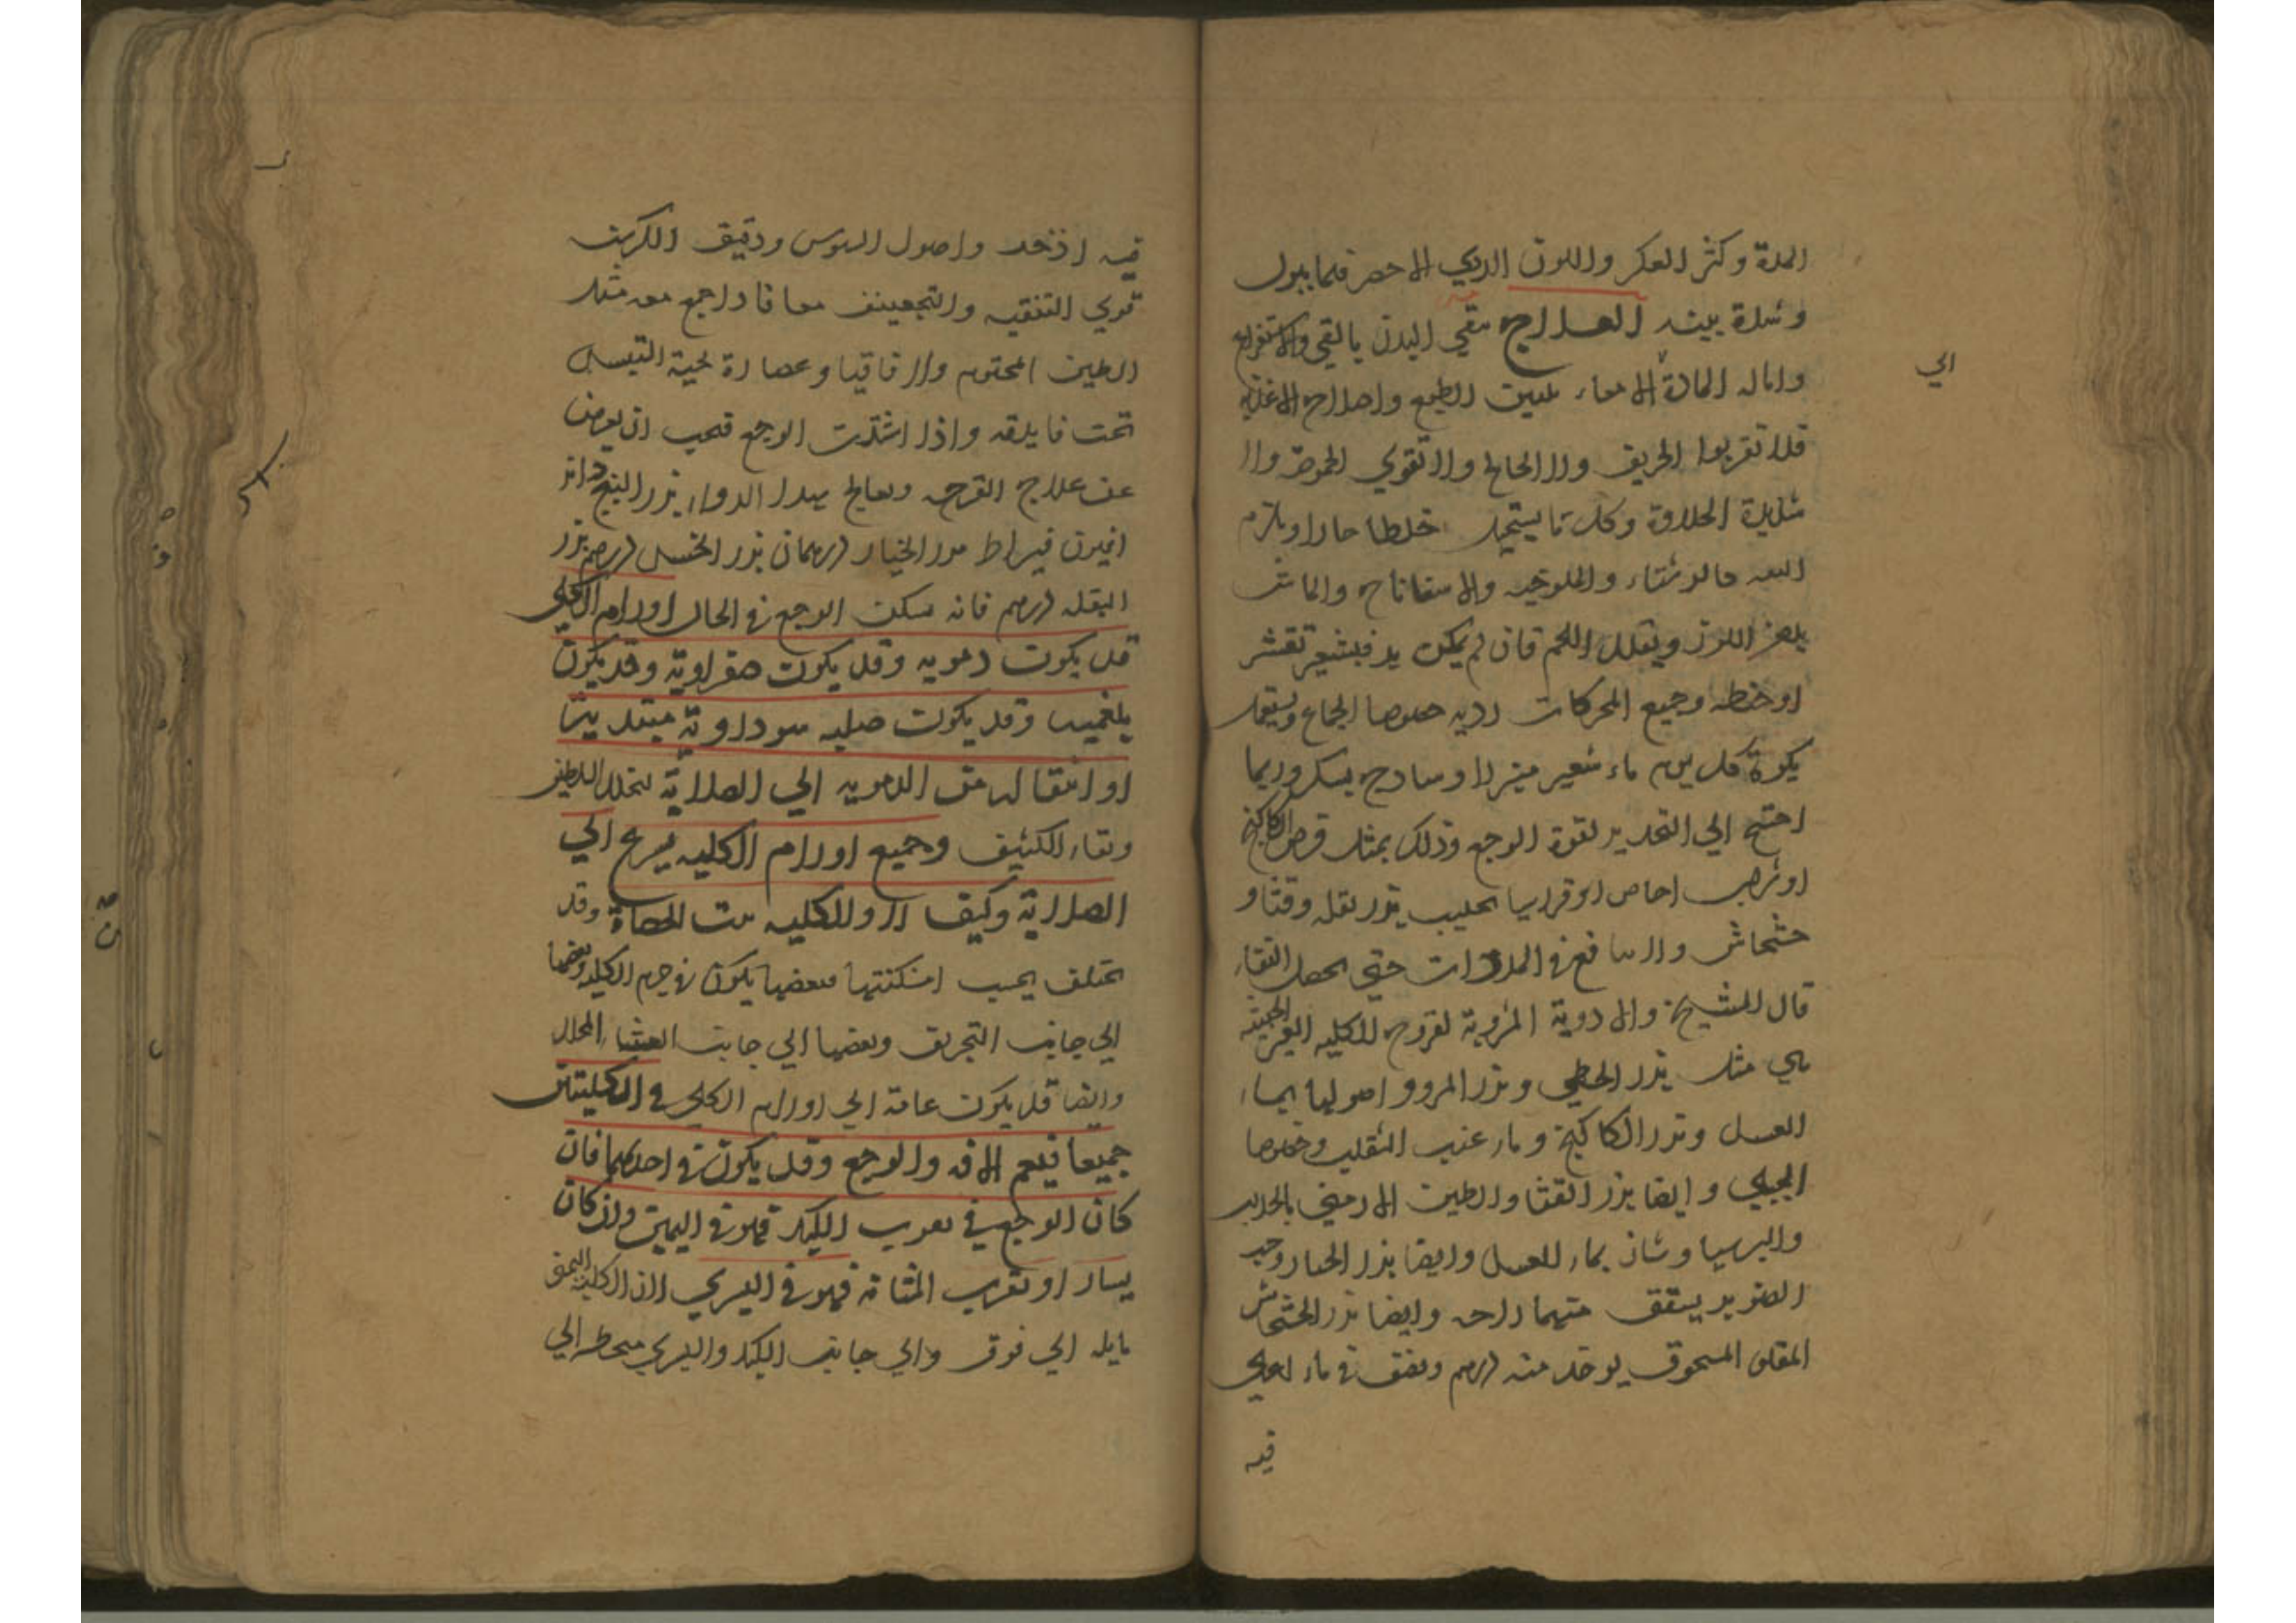 المدة وكثر العكر واللون الردي الاحمر فيما يبول
وشدة بينه العلاج نقي البدن بالقي والاستفراغ
وامالة المادة الامعاء بتليين الطبع واصلاح الاغذيه
الي
فلا تقربوا الحريف ولا المالح ولا القوي الحموضه ولا
شديدة الحلاوة وكل ما يستحيل خلطا حارا ويلزم
والملوخيه والاسفاناخ والماش
بدهن اللوز ويقلل اللحم فان لم يكن بد فبشعير مقشر
او حنطه وجميع المحركات رديه خصوصا الجماع ويستعمل
بكرة كل يوم ماء شعير مبزرا او ساذج بسكر وربما
احتيج الي التخدير لقوة الوجع وذلك بمثل قرص الكاكنج
او شراب اجاص او قراسيا بحليب بزر بقله وقثا و
خشخاش ولا في المدرات حتي يحصل النقاء
قال الشيخ والادوية المشروبة لقروح الكليه الغير الخبيثه
هي مثل بزر الخطمي وبزر المرو واصولها بماء
العسل وبزر الكاكنج وماء عنب الثعلب وخصوصا
الجبلي وايضا بزر القثا والطين الارمني
بماء العسل وايضا بزر الخيار وحب
الصنوبر منهما وايضا بزر الخشخاش
المقلو المسحوق يوخد منه درهم وينقع في ماء اغلي
فيه
فيه اذخر واصول السوس ودقيق الكرسنه
قوي التنقيه والتجفيف معا فاذا جمع معه مثل
الطين المختوم والاقاقيا وعصارة لحية التيس
واذا اشتدت الوجع فيجب ان يعرض
عن علاج القرحه ويعالج بهدا الدواء بزر البنج دانق
افيون قيراط بزر الخيار درهمان بزر الخس درهم بزر
البقله درهم فانه يسكن الوجع في الحال اورام الكلي
قد يكون دمويه وقد يكون صفراوية وقد يكون
بلغميه وقد يكون صلبه سوداوية مبتديتا
او انتقاله من الدمويه الي الصلابة لتحلل اللطيف
وبقاء الكثيف وجميع اورام الكليه يسرع الي
الصلابة وكيف لا والكليه بيت الحصاة وقد
تختلف بحسب امكنتها فبعضها يكون في جرم الكليه وبعضها
الي جانب التجويف وبعضها الي جانب الغشا المجلل
وايضا قد يكون عامة الي اورام الكلي في الكليتين
جميعا فيعم الافه والوجع وقد يكون في احدهما فان
كان الوجع في بقرب الكبد فهو في اليمين وان كان
يسار او بقرب المثانة فهو في اليسري لان الكليه اليمني
مايله الي فوق والي جانب الكبد واليسري منحطه الي